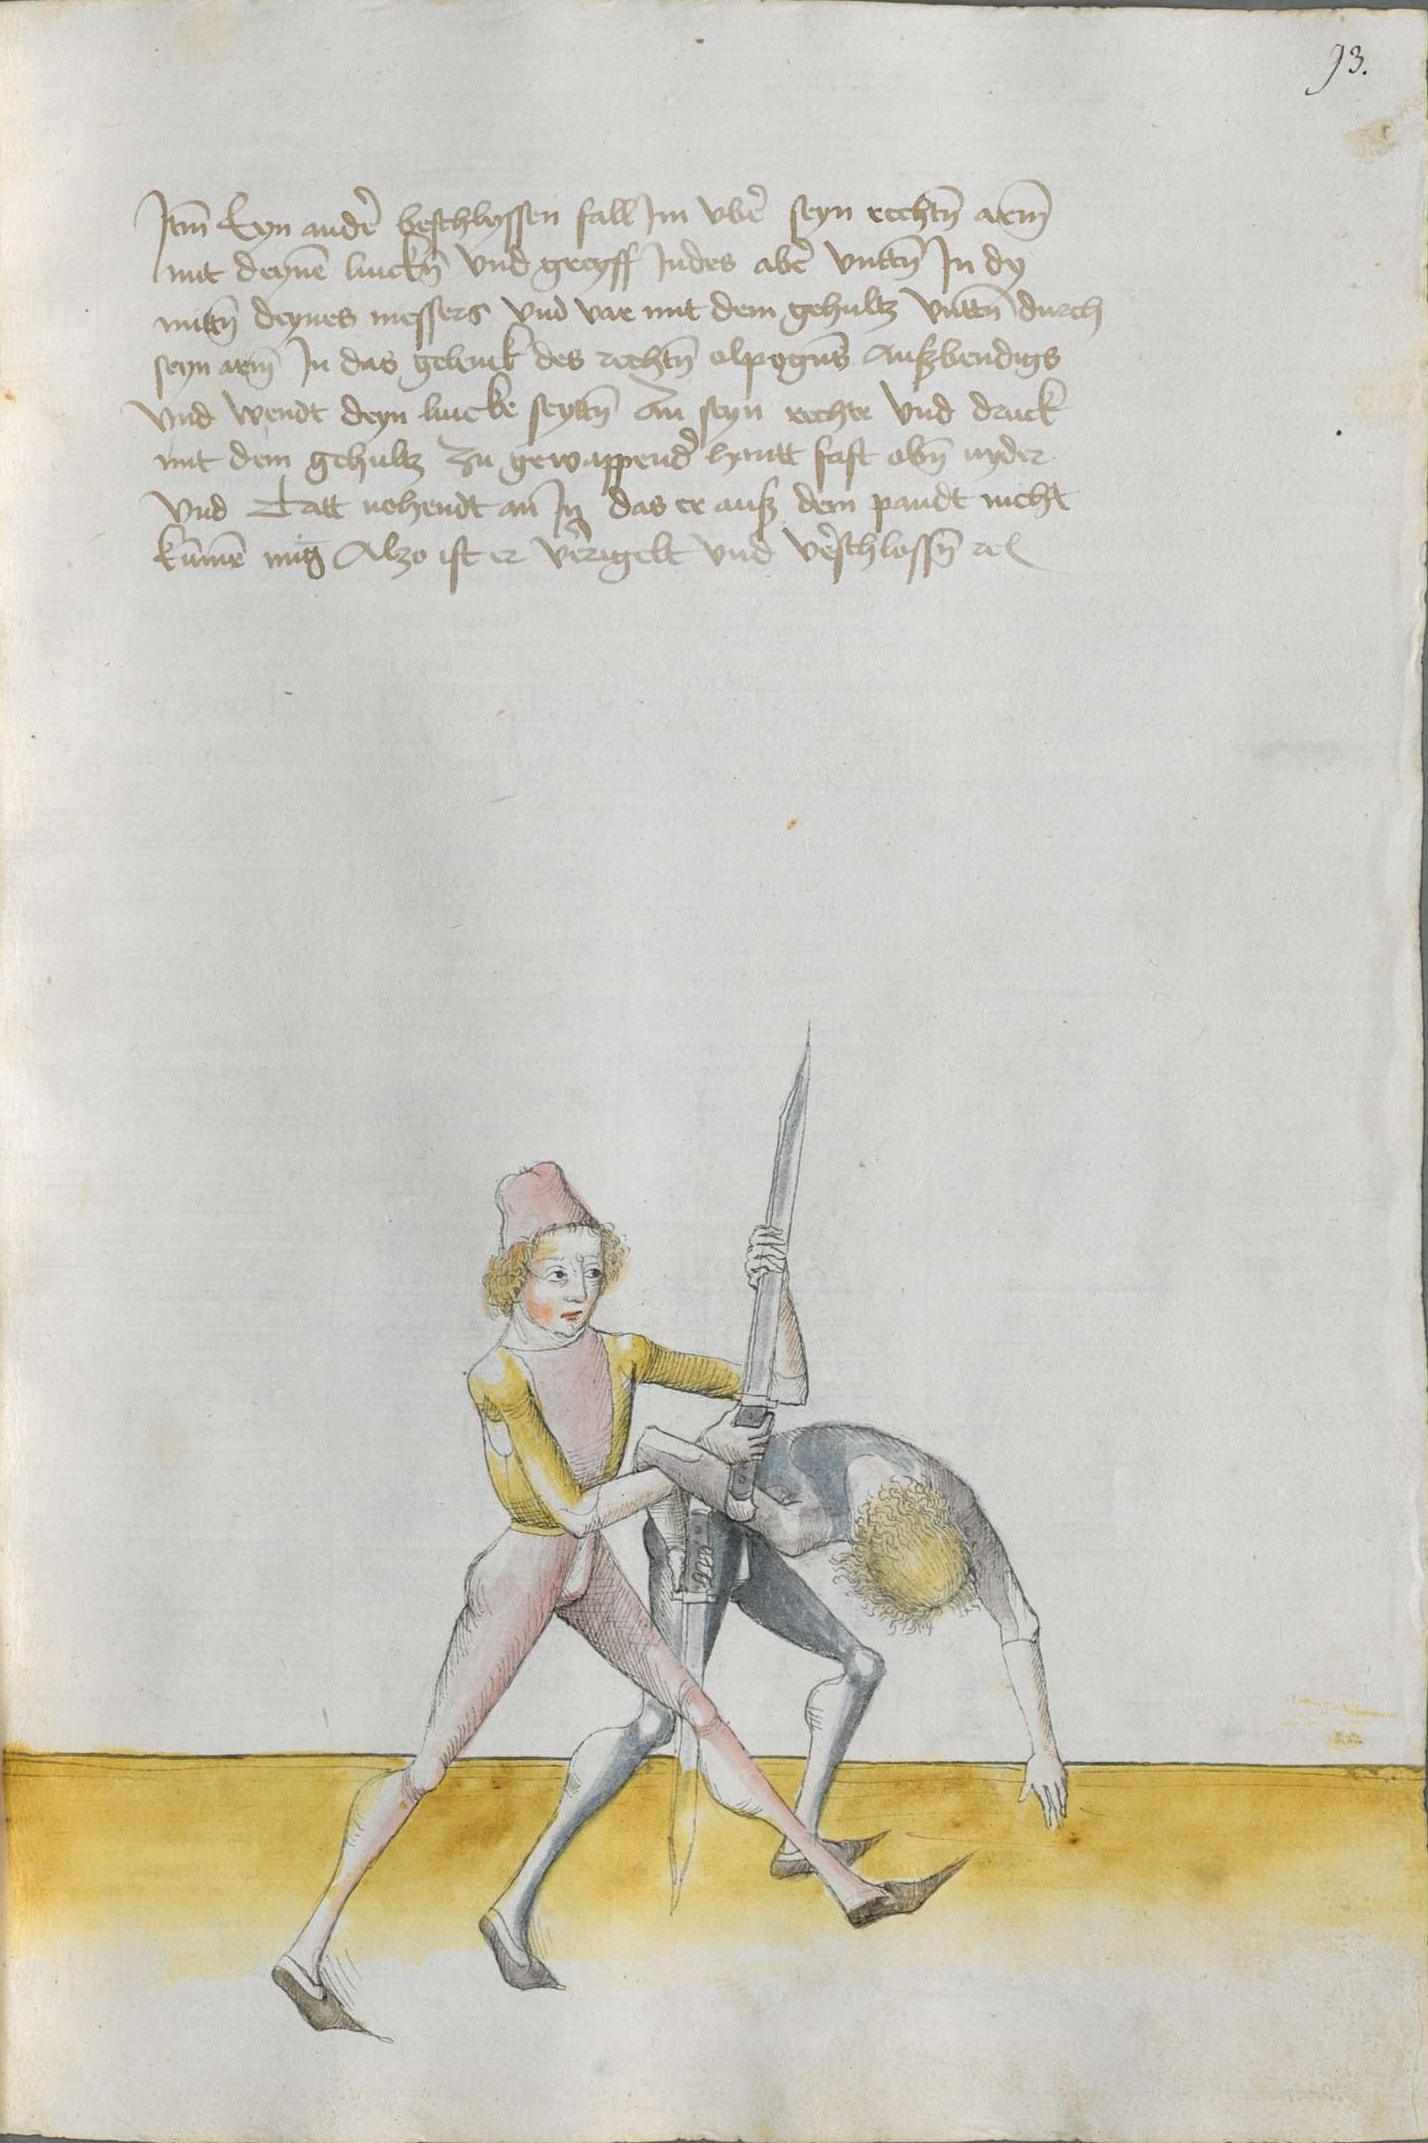 93.
Itm̄ Eyn ander̄ beschlyssen fall Im vber̄ seyn rechtn̄ arm̄
mit deynē linckn̄ vnd greyff Indes aber̄ vnttn̄ In dy
mittn̄ deynes messers vnd var mit dem gehultz vnttn̄ durch
seyn arm̄ In das gelenck des rechtn̄ elpogns̄ außbendigs
vnd wendt deyn lincke seyttn̄ An seyn rechte vnd druck
mit dem gehultz zu gewappender̄ hantt fast obn̄ nyder
vnd Tratt nohendt an In das er auß dem pandt nicht
kūmē mūg Alzo ist er ver̄rigelt vnd ver̄schlossn̄ rc